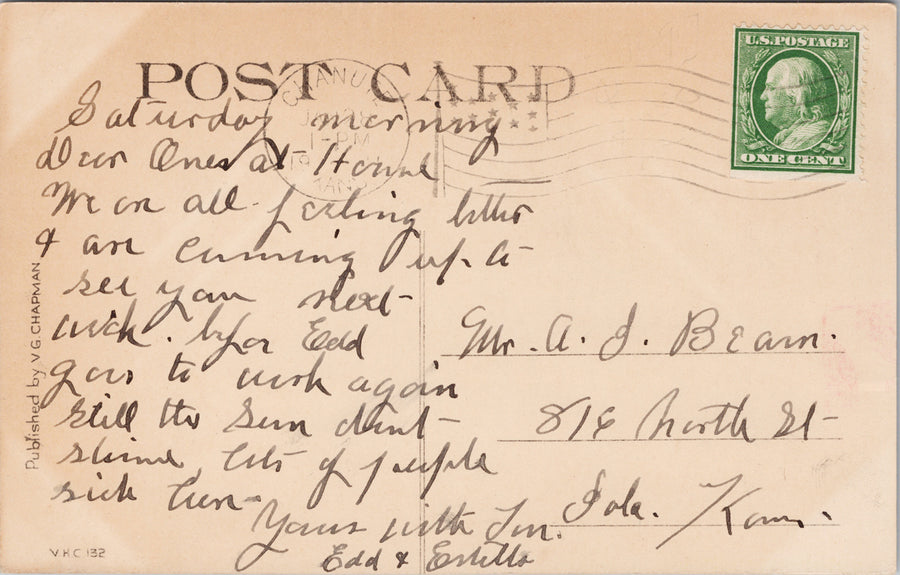 POST CARD
CHANUTE
1-PM
KANS
U.S. POSTAGE
ONE CENT
Saturday morning
Dear Ones at Home
We are all feeling better
& are comming up to
see you next
week. befor Edd
goes to work again
still the Sun dont
shine, lots of people
sick here
Yours with Love.
Edd & Estella
Mr. A. J. Beam.
816 North St
Iola. Kans.
Published by V.G. CHAPMAN
V.H.C 132